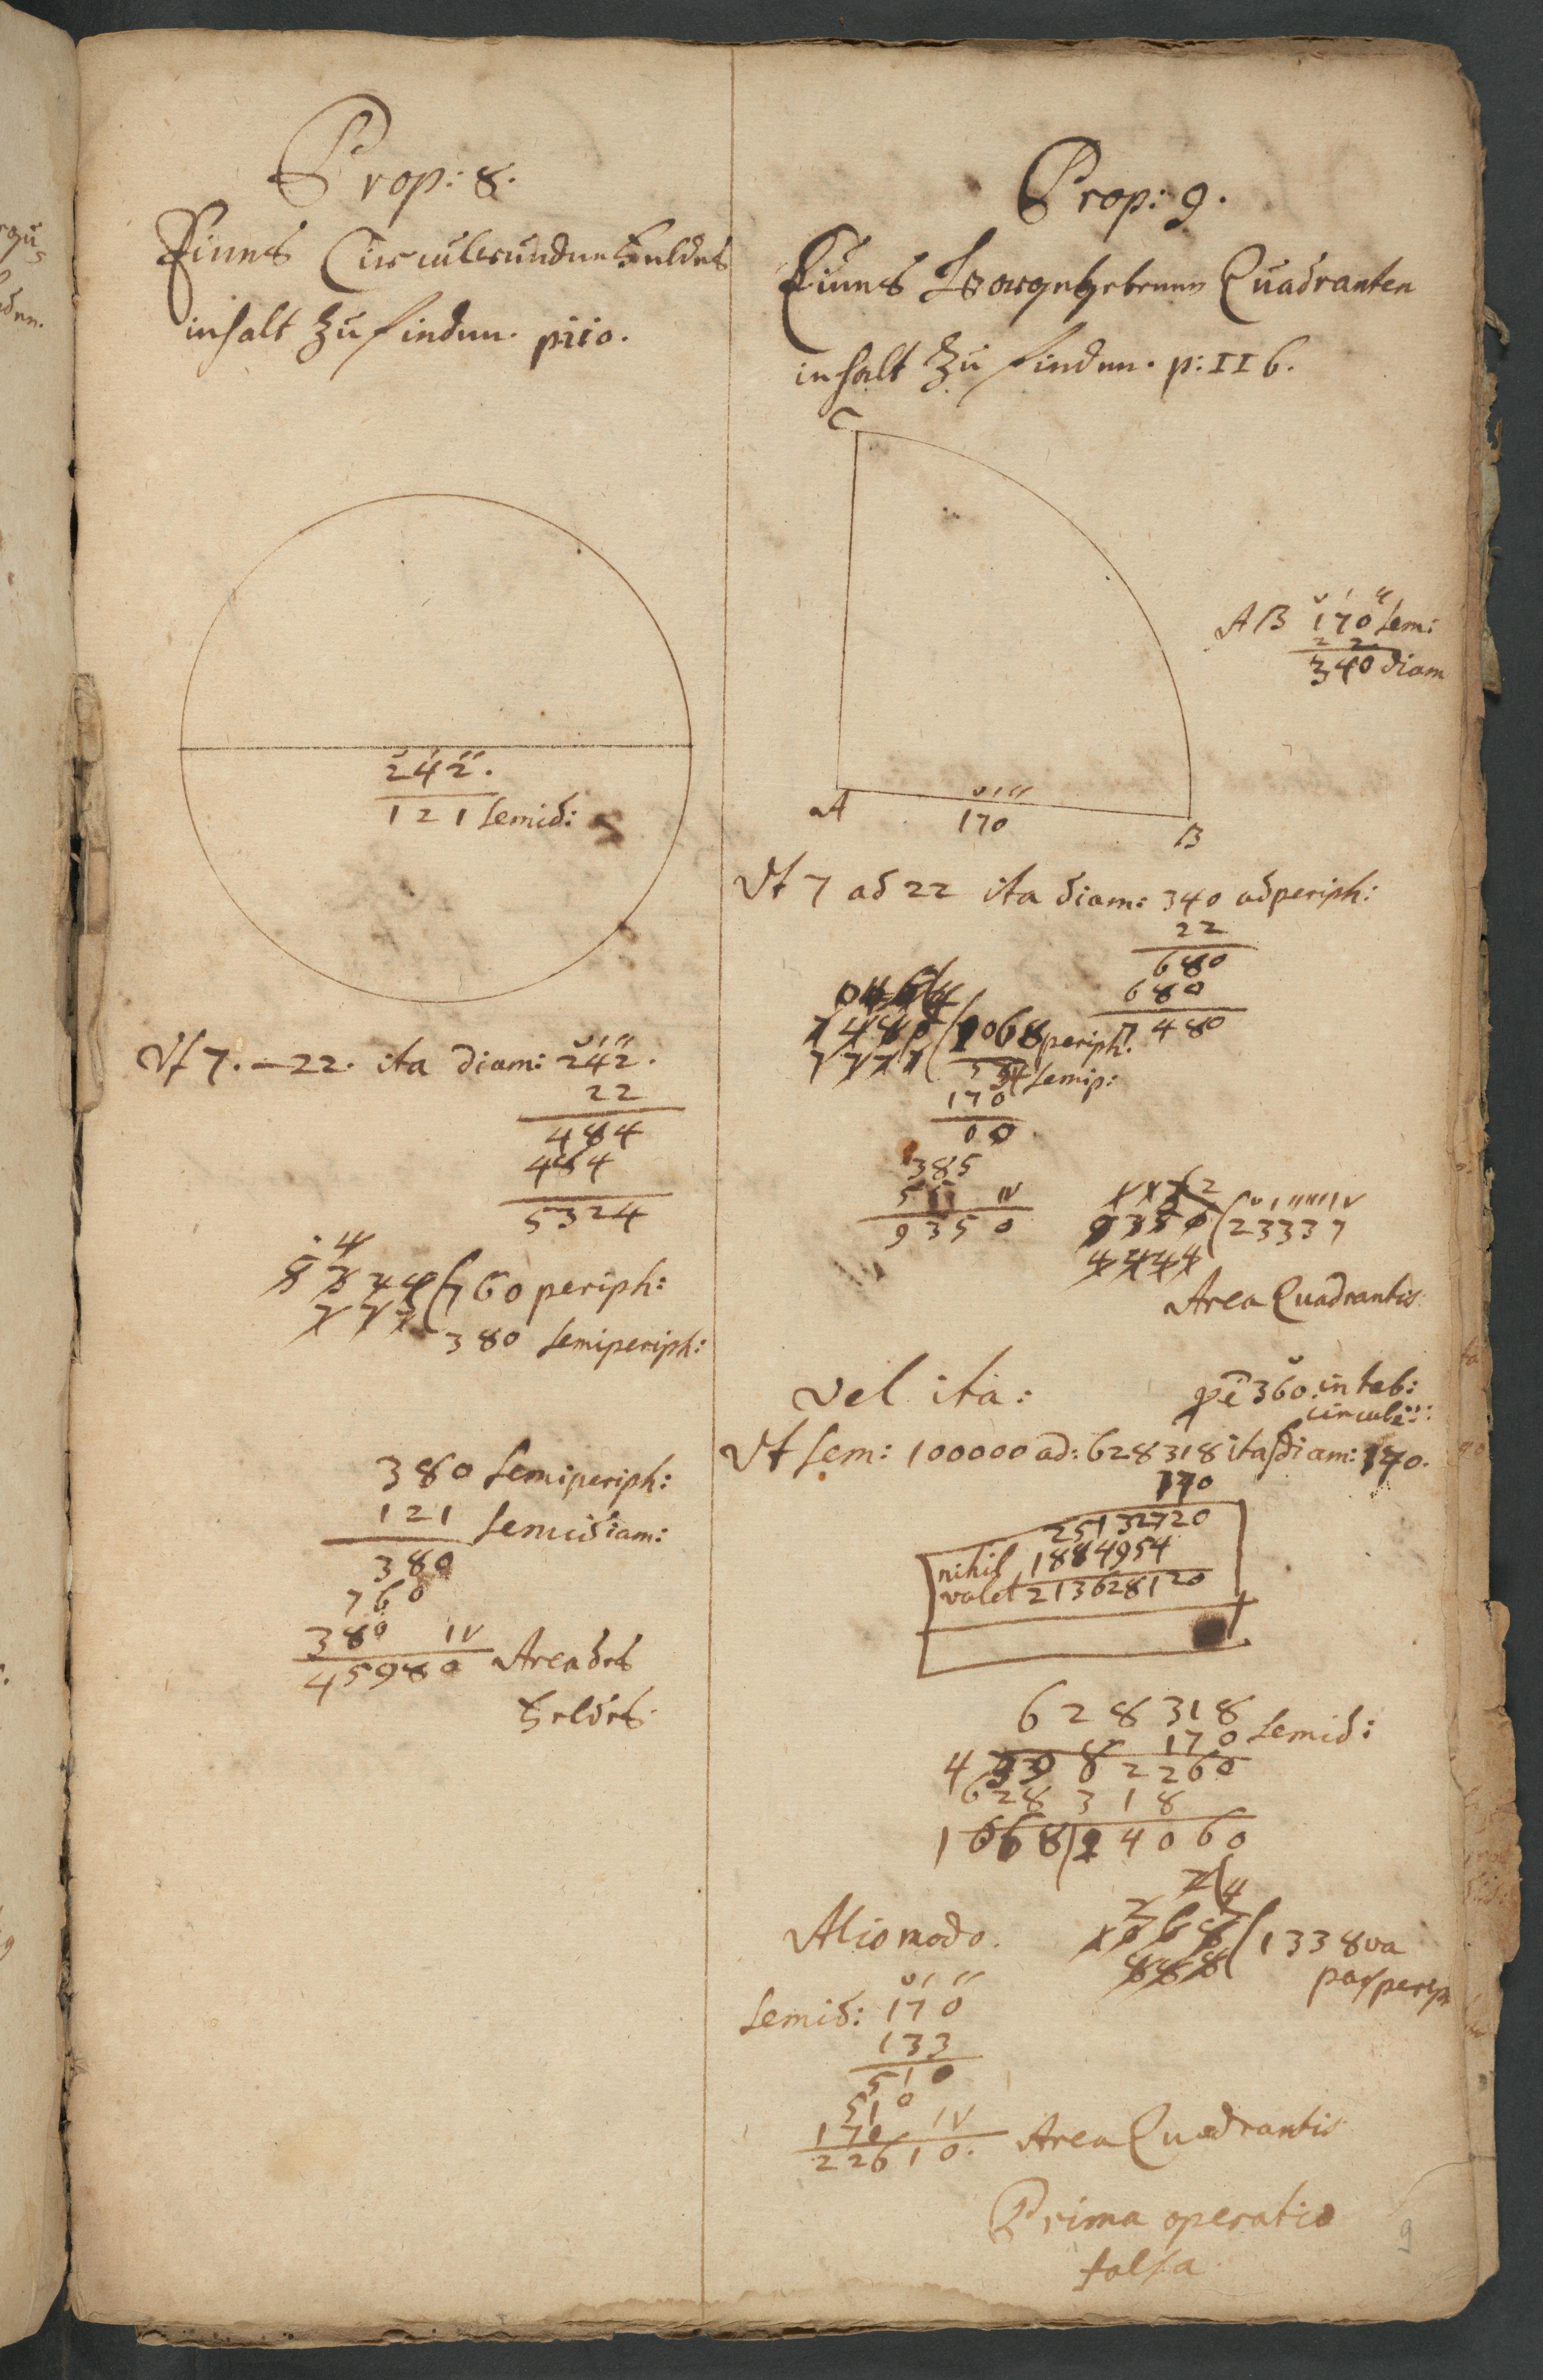 Prop: 8.
Eines Circulrunden Feldes
inhalt zu finden. p110.
242.
121 Semid:
Vt 7. — 22. ita diam: 242.
22
484
484
5324
4
5324 (760 periph:
777
380 Semiperiph:
380 Semiperiph:
121 Semidiam:
380
760
380 IV
45980 Area des
Feldes.
Prop: 9.
Eines Quadranten
inhalt zu finden. p: 116.
C
AB 170 Sem:
2
340 diam
A
170
B
Vt 7 ad 22 ita diam: 340 ad periph:
22
680
680
7480
7480 (1068 periph:
7777
534 Semip:
170
10
385
IV
9350
9350 (23337
4444
Area Quadrantis
Vel ita:
360. in tab:
Vt Sem: 100000 ad: 628318 ita diam: 170.
170
25132720
nihil 1884954
valet 213628120
628318
170 Semid:
628318
1068|14060
Alio modo.
1068 (133 8va
888
pars periph
Semid: 170
133
510
510
170 IV
22610. Area Quadrantis
Prima operatio
falsa
9